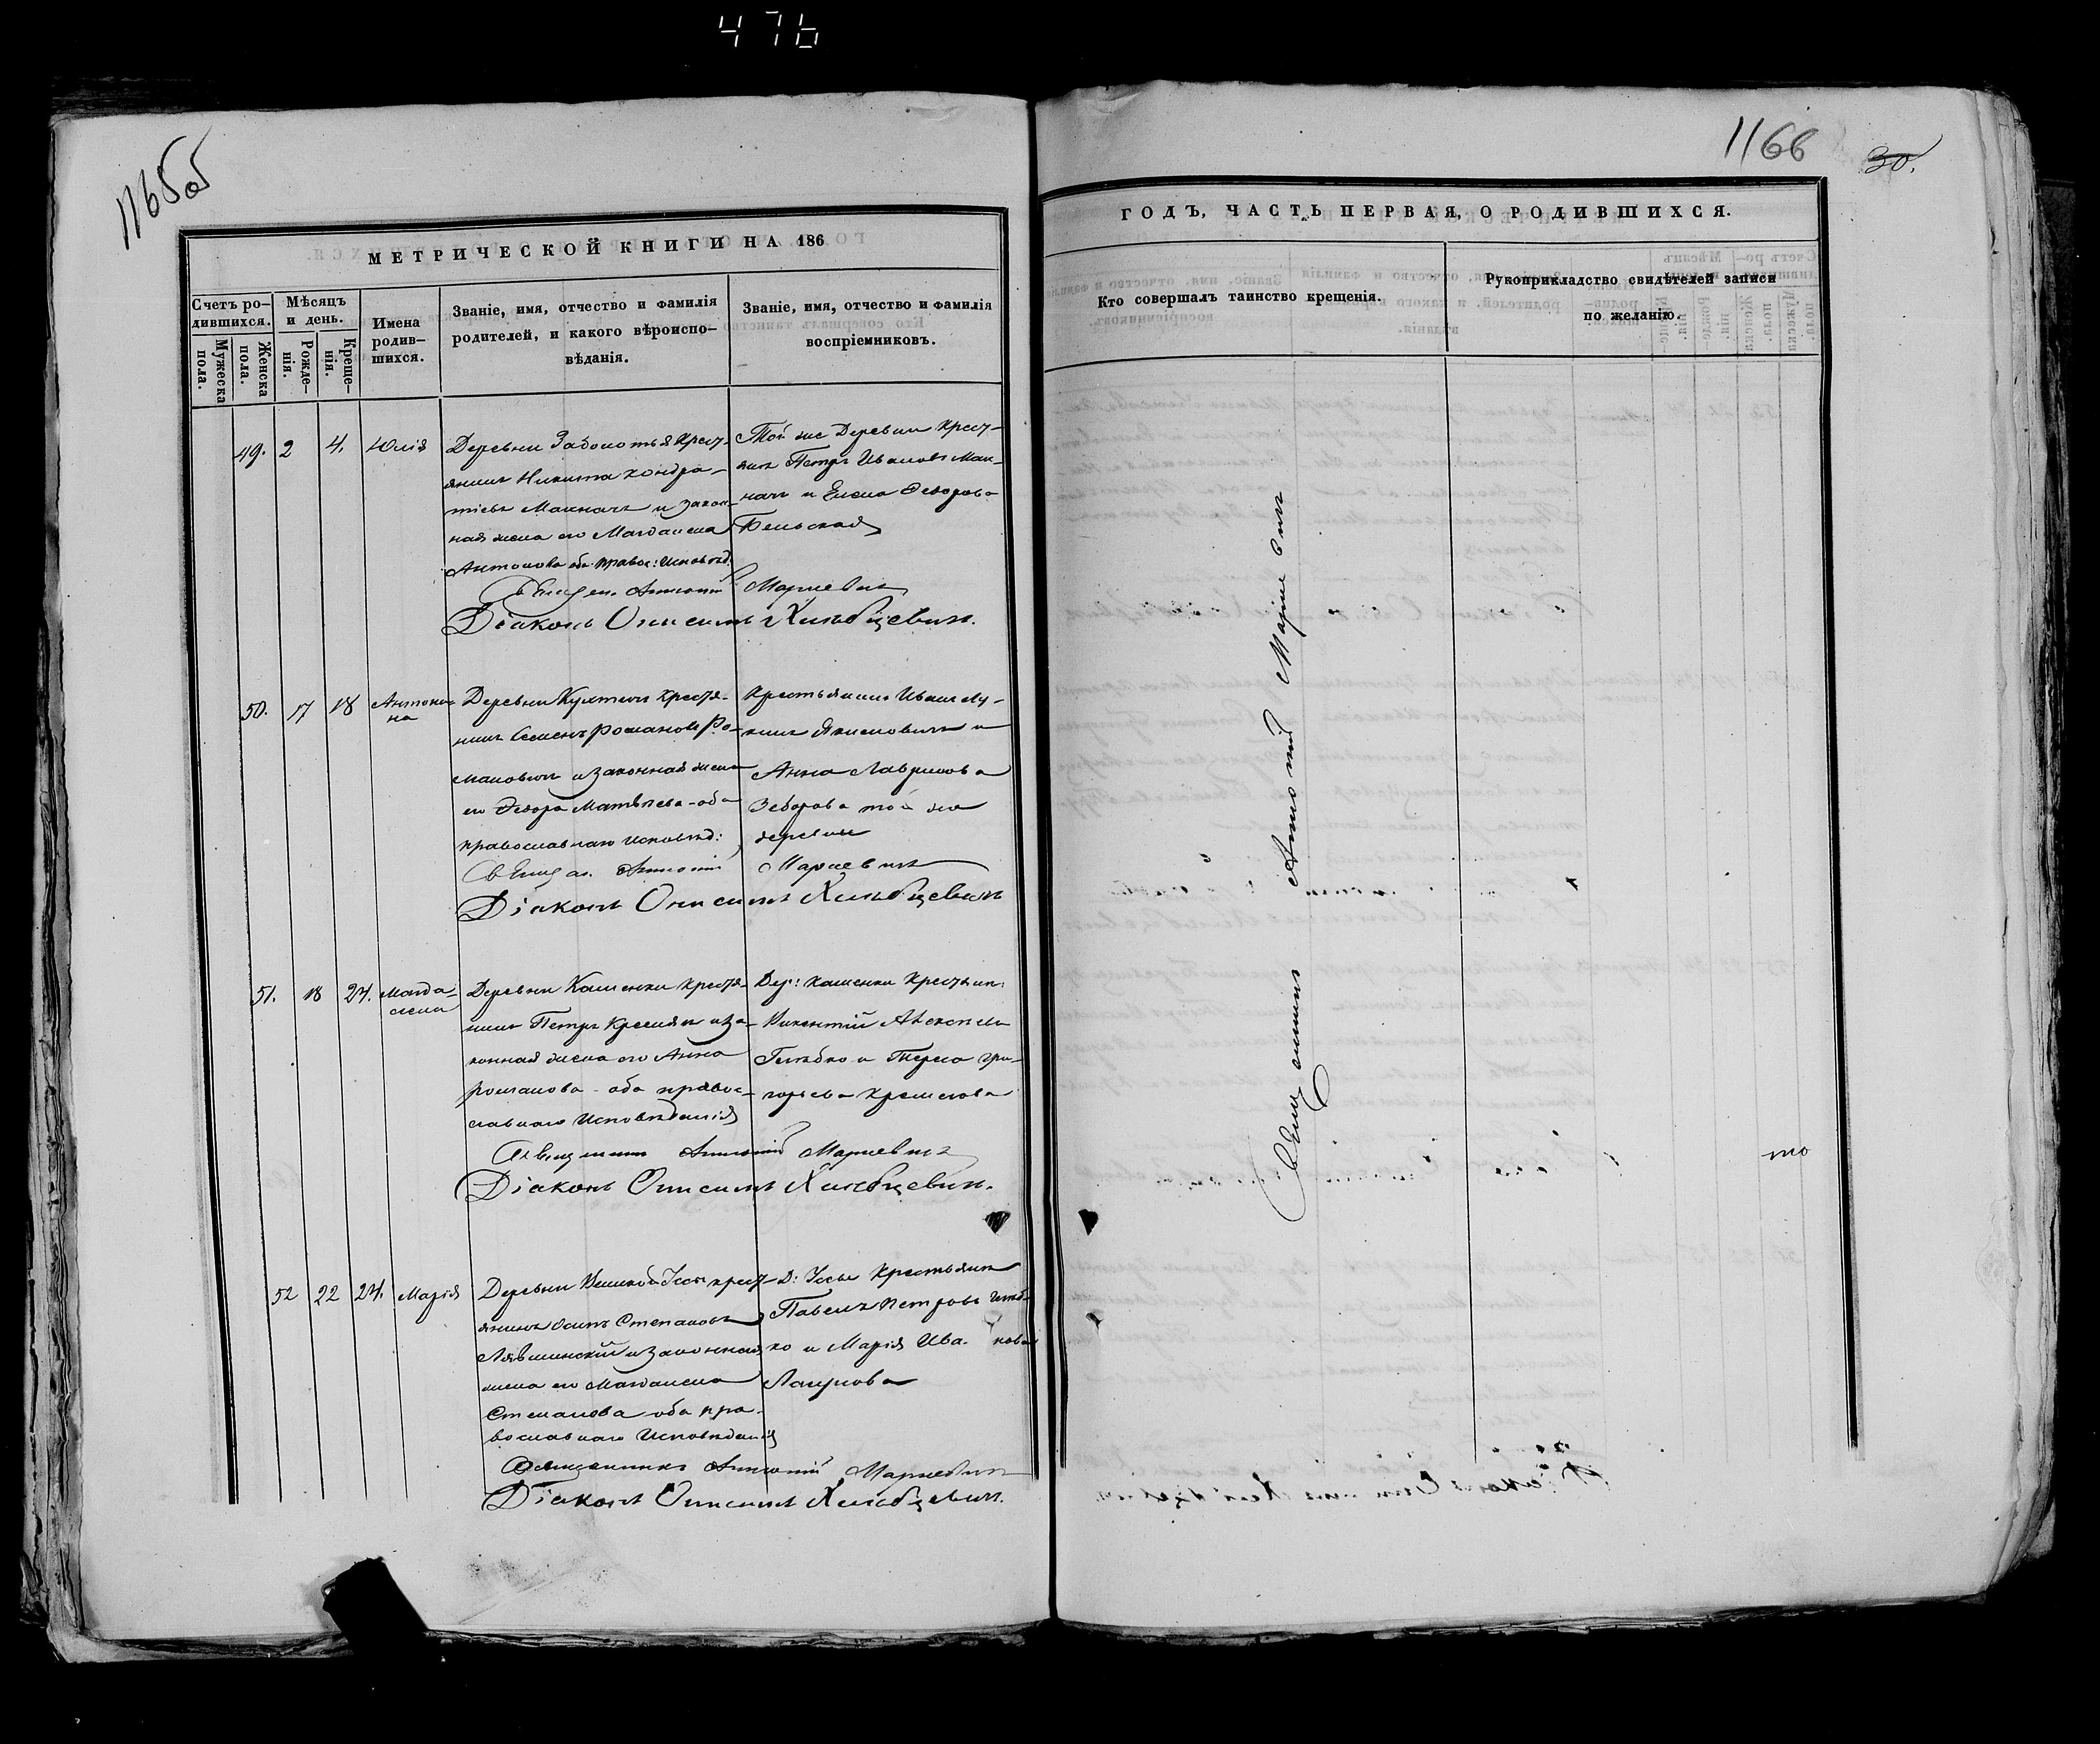 476
1165об
1166
30.
МЕТРИЧЕСКОЙ КНИГИ НА 186
ГОДЪ, ЧАСТЬ ПЕРВАЯ, О РОДИВШИХСЯ.
Счетъ ро-
дившихся.
Мужеска
пола.
Женска
пола.
Мѣсяцъ
и день.
Рожде-
нія.
Креще-
нія.
Имена
родив-
шихся.
Званіе, имя, отчество и фамилія
родителей, и какого вѣроиспо-
вѣданія.
Званіе, имя, отчество и фамилія
воспріемниковъ.
Кто совершалъ таинство крещенія.
Рукоприкладство свидѣтелей записи
по желанію.
49. 2 4. Юлія
Деревни Заболотья крест-
янинъ Никита Кондра-
тьевъ и закон-
ная жена его Магдалена
Антонова оба правос: исповѣд.
Той же Деревни крест-
янинъ Петръ Ивановъ
и Елена Ѳедорова
Бельская
Антоній Марцевичъ
Діаконъ Онисимъ
50. 17 18 Антони-
на
Деревни крестя-
нинъ Семенъ Романовъ Ро-
мановичъ и законная жена
его Ѳедора Матвѣева оба
православнаго исповѣд:
Крестьянинъ Иванъ
Якимовичъ и
Анна
той же
деревни
Антоній Марцевичъ
Діаконъ Онисимъ
51. 18 24. Магда-
лена
Деревни Каменки крестя-
нинъ Петръ и за-
конная жена его Анна
Романова оба правос-
лавнаго исповѣданія
Дер: Каменки крестьянин:
Викентій Алексѣевъ
и Тереса Гри-
горьева
Священникъ Антоній Марцевичъ
Діаконъ Онисимъ
52 22 24. Марія
Деревни Великой Уссы крест-
янинъ Осипъ Степановъ
и законная
жена его Магдалена
Степанова оба пра-
вославнаго исповѣданія
Д: Уссы Крестьянинъ
Павелъ Петровъ
и Марія Ива нова
Священникъ Антоній Марцевичъ
Діаконъ Онисимъ
Священникъ Антоній Марцевичъ
то